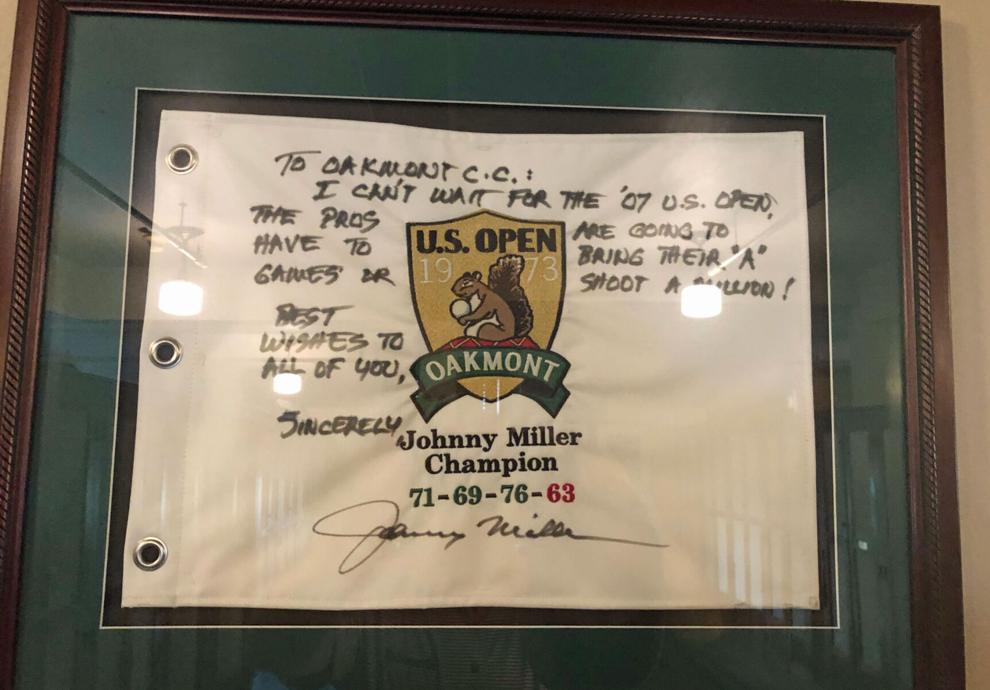 TO OAKMONT C.C.:
I CAN'T WAIT FOR THE '07 U.S. OPEN,
THE PROS ARE GOING TO
HAVE TO BRING THEIR "A"
GAMES OR SHOOT A MILLION!
BEST
WISHES TO
ALL OF YOU,
SINCERELY,
U.S. OPEN
1973
OAKMONT
Johnny Miller
Champion
71-69-76-63
Johnny Miller